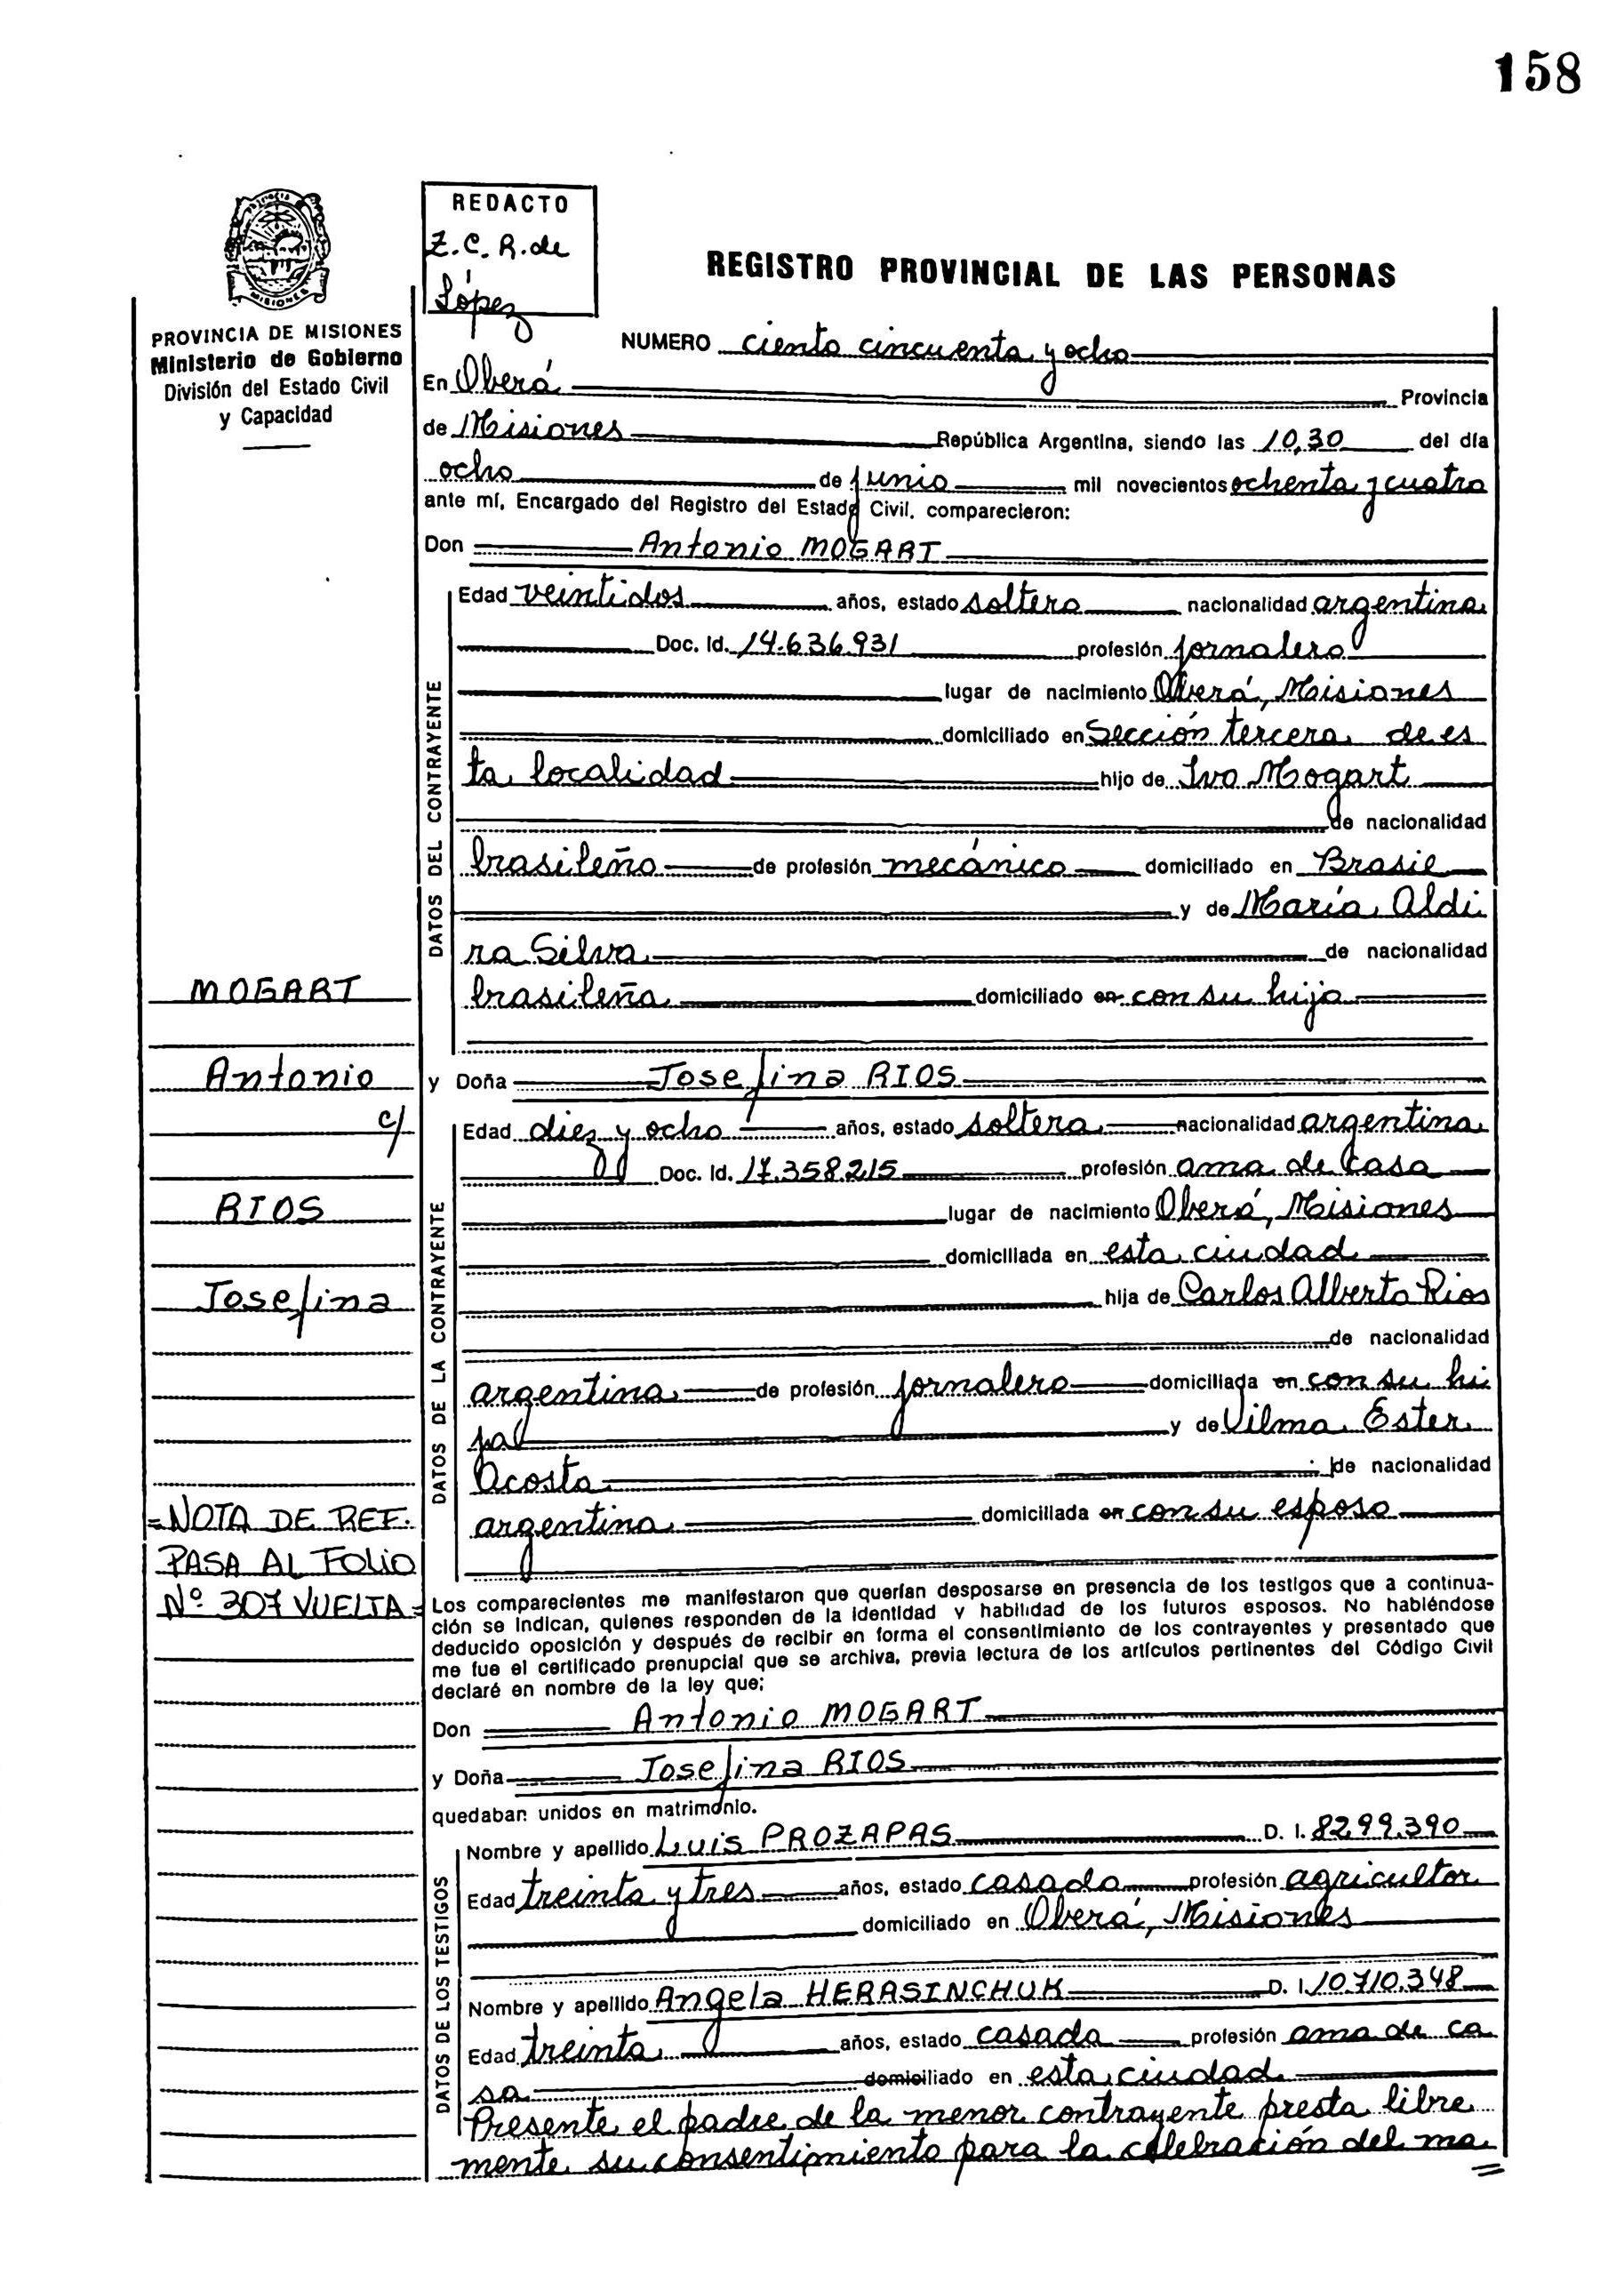 158
REDACTO
Z.C.R. de
López
PROVINCIA DE MISIONES
Ministerio de Gobierno
División del Estado Civil
y Capacidad
MISIONES
REGISTRO PROVINCIAL DE LAS PERSONAS
NUMERO ciento cincuenta y ocho
En Oberá Provincia
de Misiones República Argentina, siendo las 10,30 del día
ocho de junio mil novecientos ochenta y cuatro
ante mí, Encargado del Registro del Estado Civil. comparecieron:
Don Antonio MOGART
DATOS DEL CONTRAYENTE
Edad veintidos años, estado soltero nacionalidad argentina
Doc. Id. 14.636.931 profesión jornalero
lugar de nacimiento Oberá, Misiones
domiciliado en Sección tercera de es
ta localidad hijo de Ivo Mogart
de nacionalidad
brasileño de profesión mecánico domiciliado en Brasil
y de María Aldi
ra Silva de nacionalidad
brasileña domiciliado en con su hijo
MOGART
Antonio
c/
RIOS
Josefina
y Doña Josefina RIOS
DATOS DE LA CONTRAYENTE
Edad diez y ocho años, estado soltera nacionalidad argentina
Doc. Id. 17.358.215 profesión ama de casa
lugar de nacimiento Oberá, Misiones
domiciliada en esta ciudad
hija de Carlos Alberto Rios
de nacionalidad
argentina de profesión jornalero domiciliada en con su hi
ja y de Vilma Ester
Acosta de nacionalidad
argentina domiciliada en con su esposo
=NOTA DE REF.
PASA AL FOLIO
Nº 307 VUELTA=
Los comparecientes me manifestaron que querían desposarse en presencia de los testigos que a continua-
ción se indican, quienes responden de la identidad y habilidad de los futuros esposos. No habiéndose
deducido oposición y después de recibir en forma el consentimiento de los contrayentes y presentado que
me fue el certificado prenupcial que se archiva, previa lectura de los artículos pertinentes del Código Civil
declaré en nombre de la ley que;
Don Antonio MOGART
y Doña Josefina RIOS
quedaban unidos en matrimonio.
DATOS DE LOS TESTIGOS
Nombre y apellido Luis PROZAPAS D. I. 8299.390
Edad treinta y tres años, estado casado profesión agricultor
domiciliado en Oberá, Misiones
Nombre y apellido Angela HERASINCHUK D. I. 10.710.348
Edad treinta años, estado casada profesión ama de ca
sa domiciliado en esta ciudad
Presente el padre de la menor contrayente presta libre
mente su consentimiento para la celebración del ma